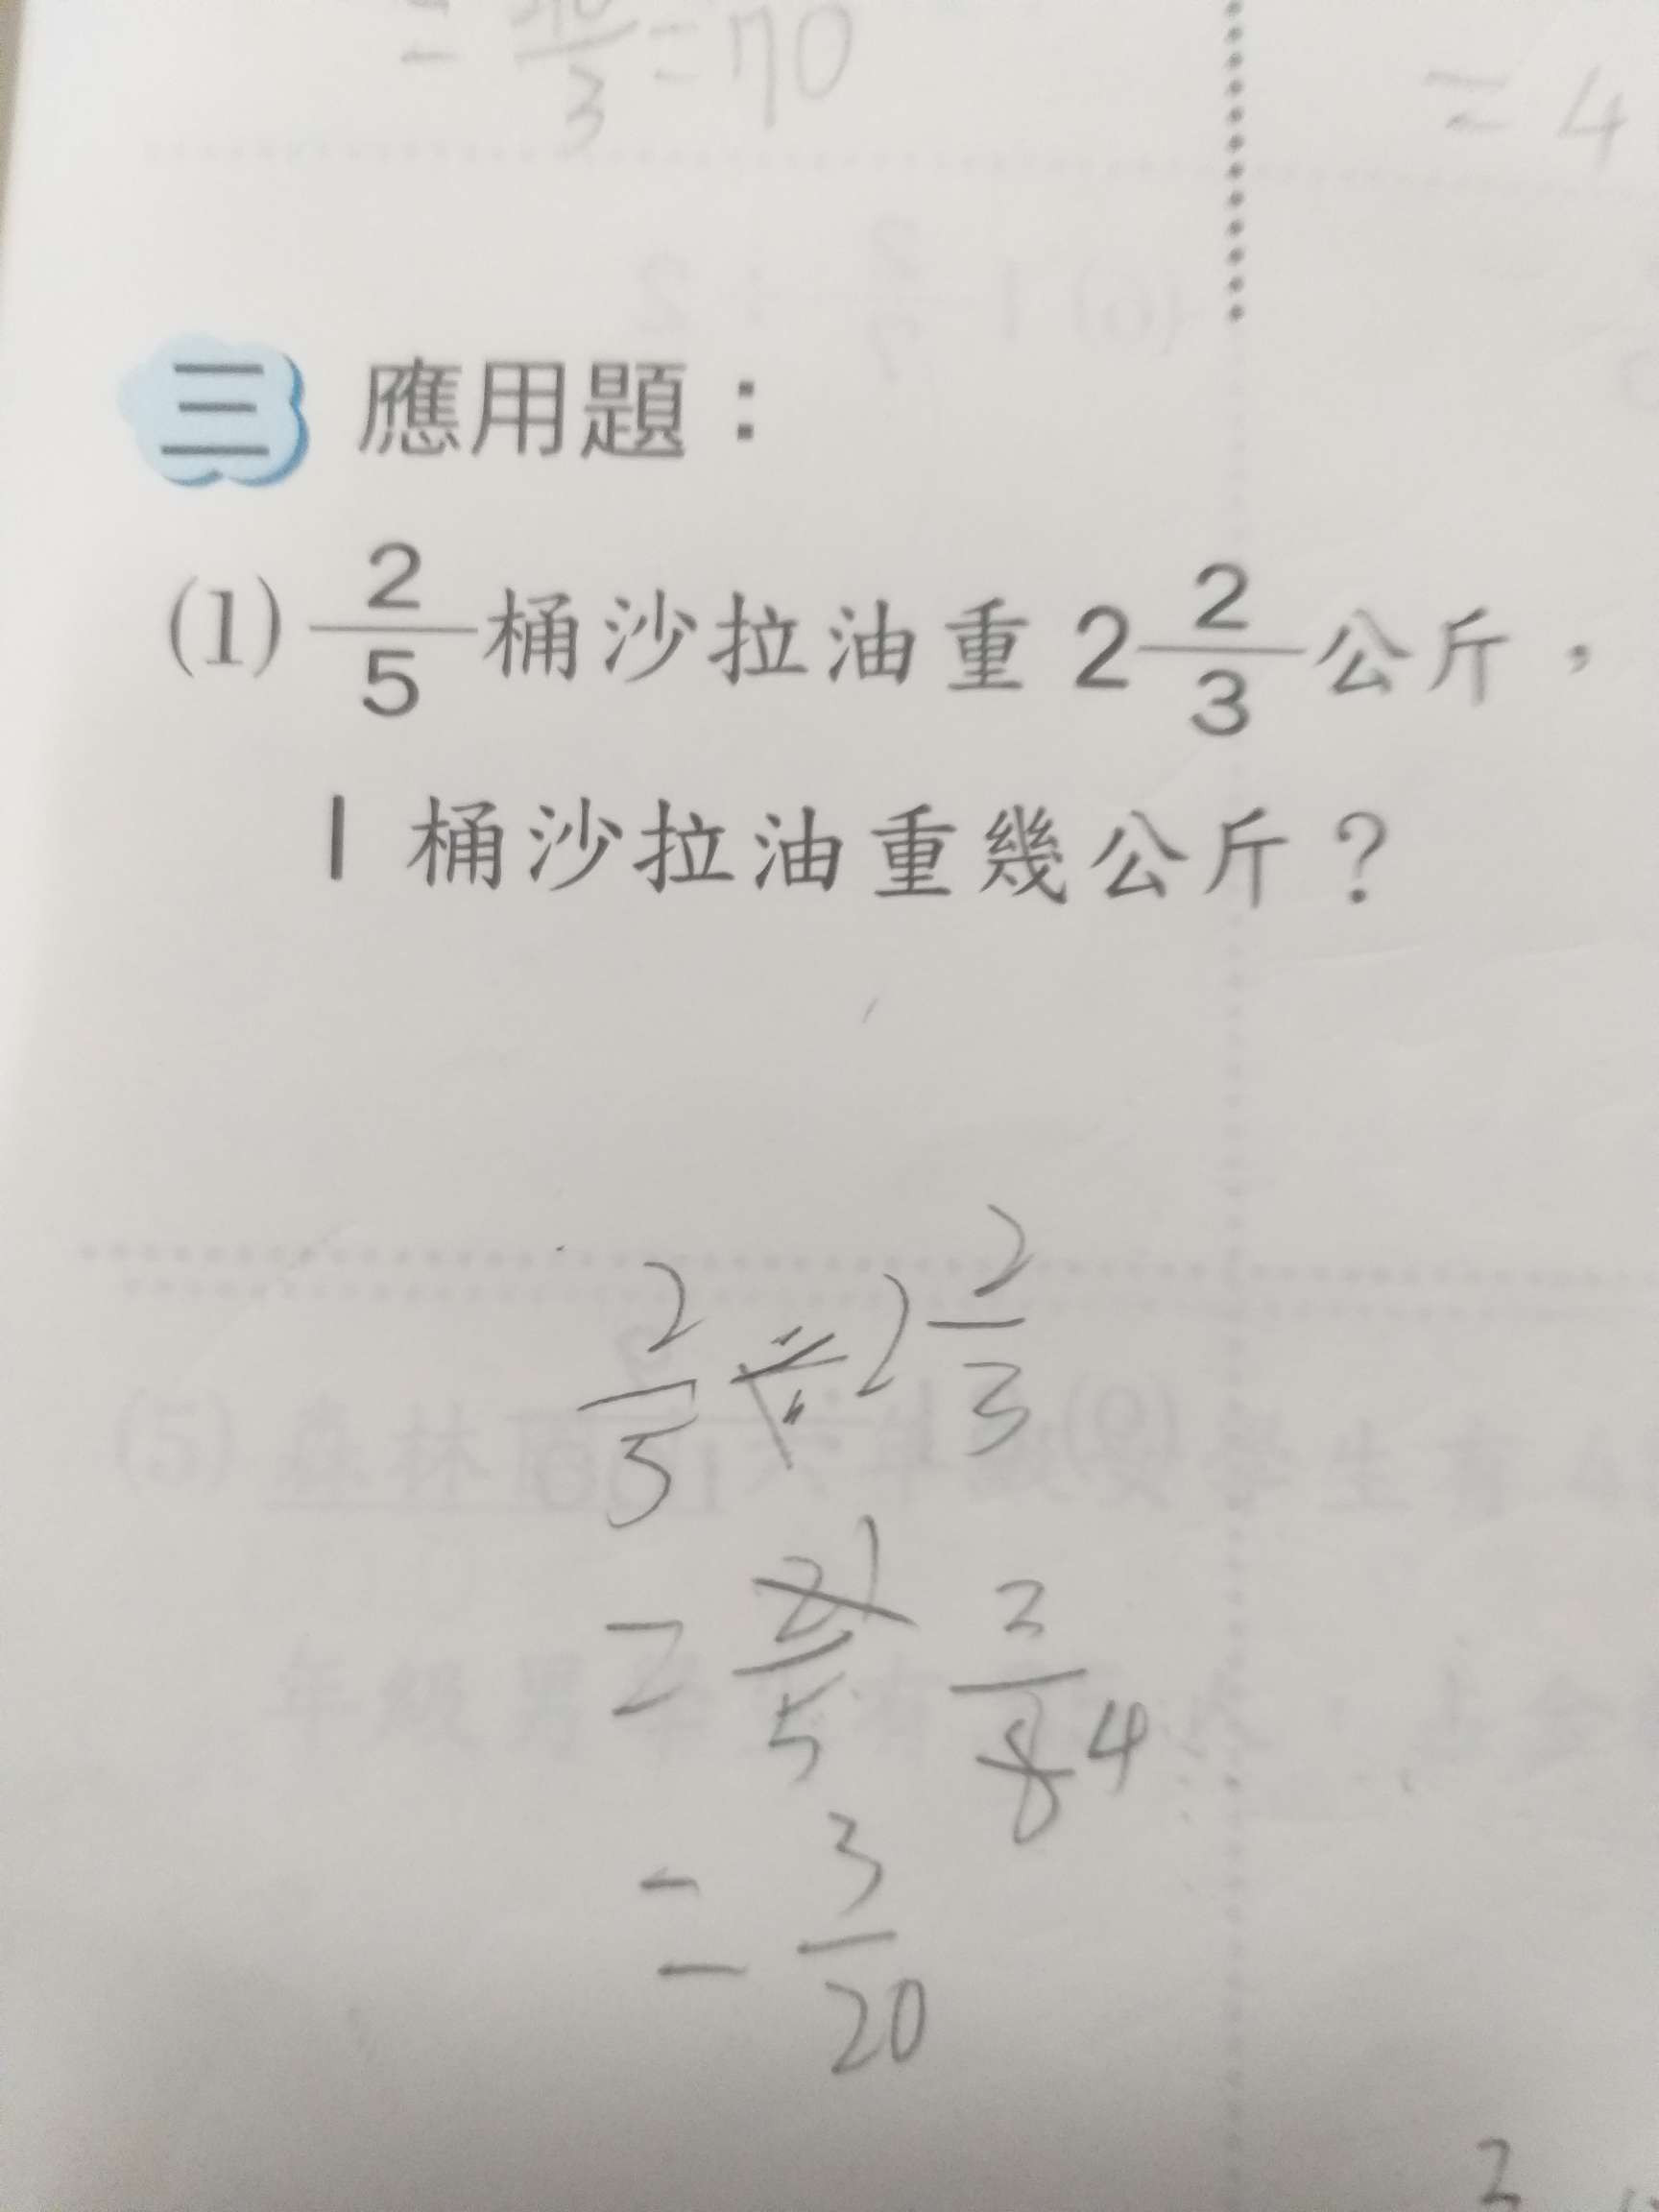 = 70
= 4
三 應用題：
(1) 2/5 桶沙拉油重 2 2/3 公斤，
1 桶沙拉油重幾公斤？
2/5 ÷ 2 2/3
= 2/5 1 3/8 4
= 3/20
2